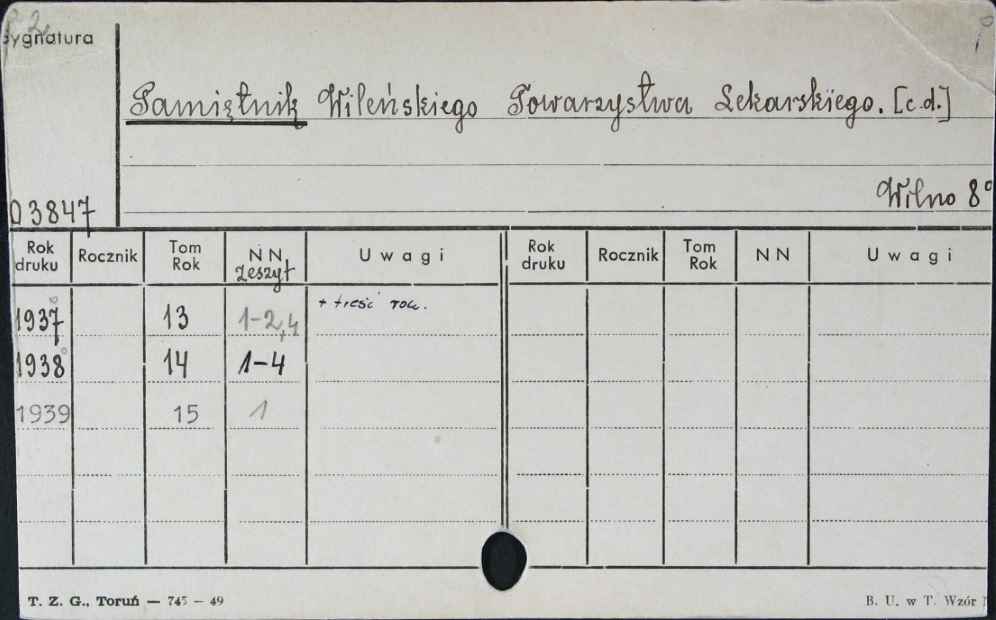 Sygnatura
Pamiętnik Wileńskiego Towarzystwa Lekarskiego. [c.d.]
Wilno 8°
03847
Rok druku Rocznik Tom Rok NN zeszyt Uwagi Rok druku Rocznik Tom Rok NN Uwagi
1937 13 1-2,4 + treść rocz.
1938 14 1-4
1939 15 1
T. Z. G., Toruń — 745 — 49
B. U. w T. Wzór